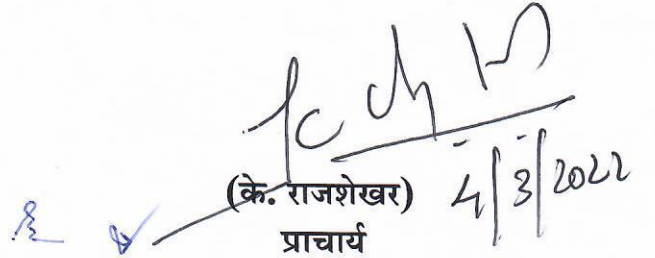 (के. राजशेखर) 4/3/2022
प्राचार्य